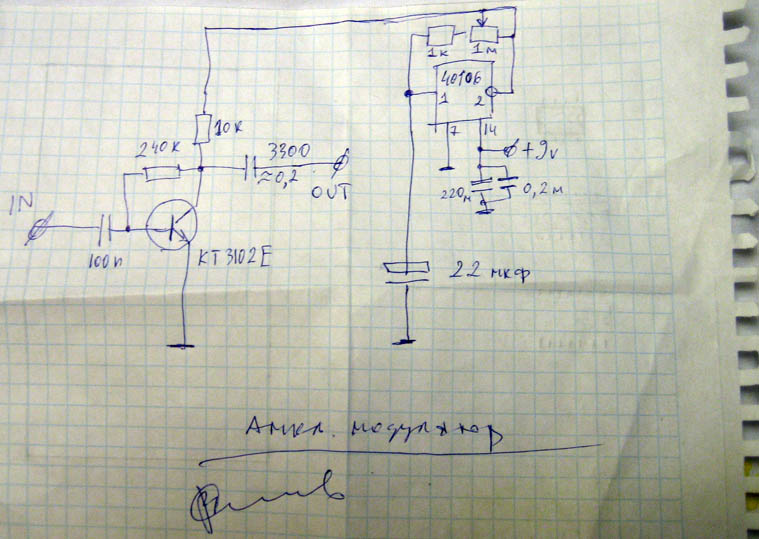 1к
1м
40106
1
2
7
14
+9v
220м
0,2м
10к
240к
3300
≈0,2
OUT
IN
100n
КТ3102Е
22 мкф
Ампл. модулятор